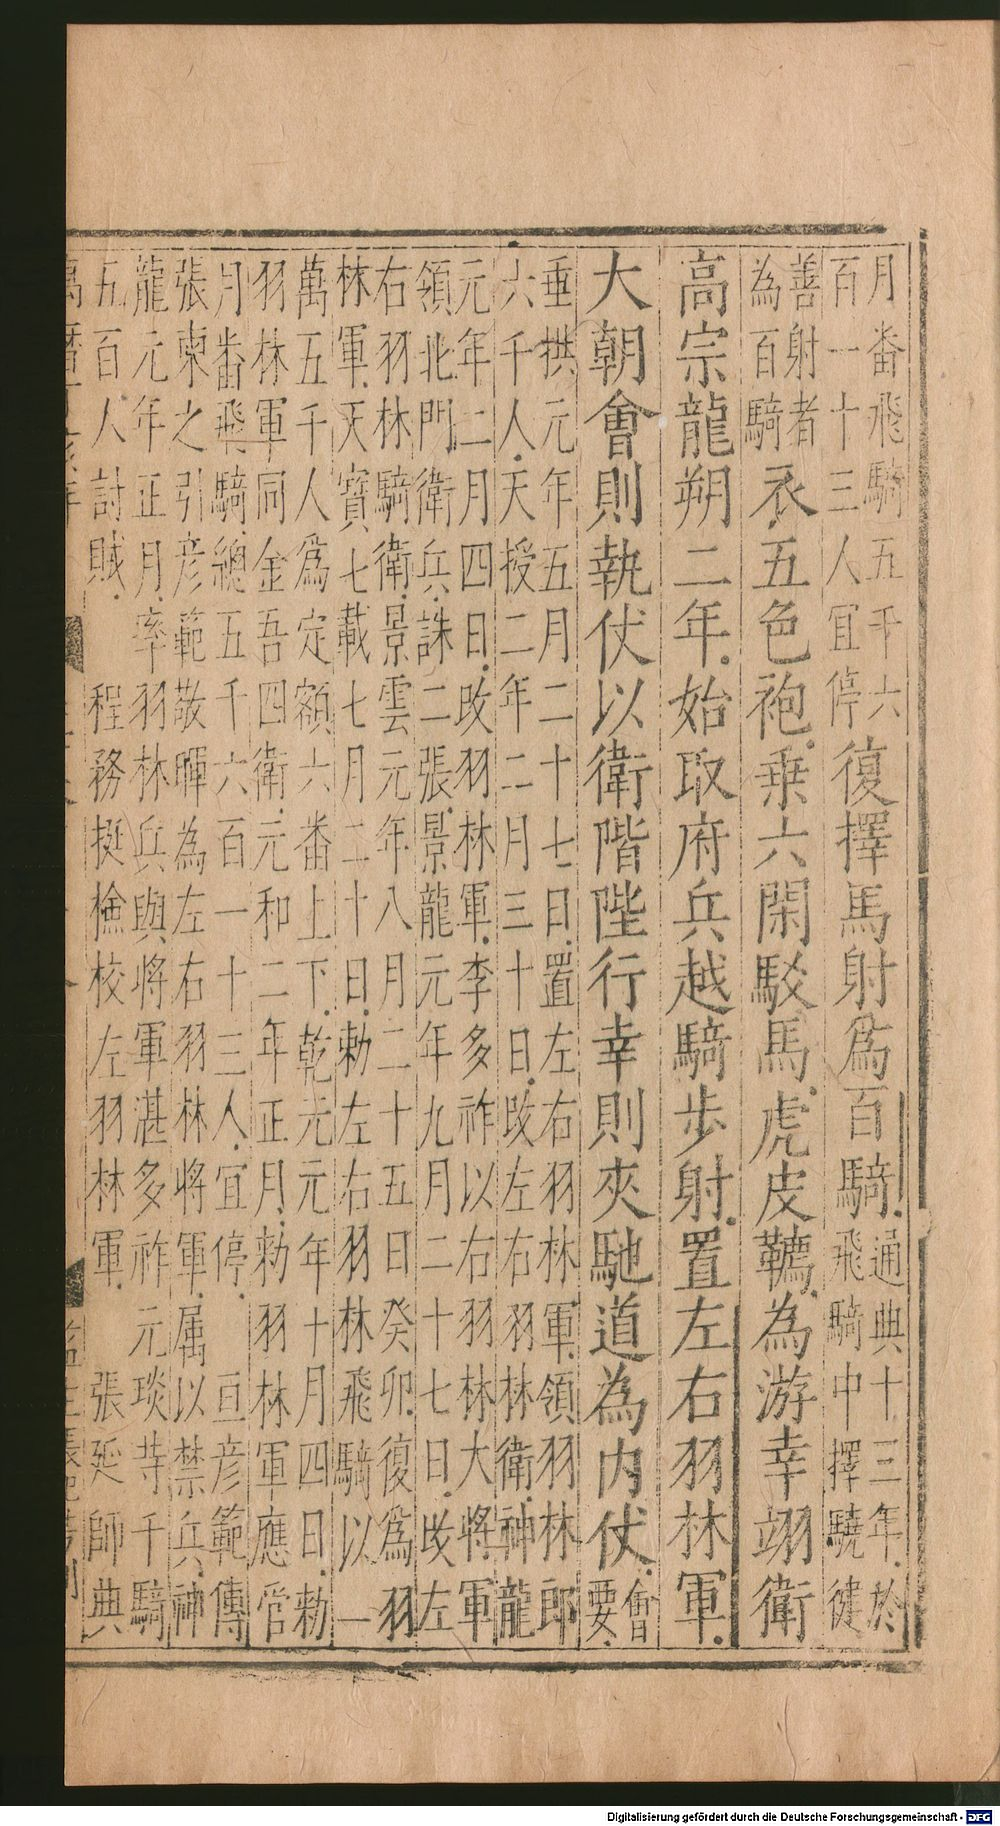 月番飛騎五千六
百一十三人宜停復擇馬射為百騎通典十三年於
飛騎中擇驍健
善射者
為百騎衣五色袍乗六閑駁馬虎皮韉為游幸翊衛
高宗龍朔二年始取府兵越騎步射置左右羽林軍
大朝會則執仗以衛階陛行幸則夾馳道為内仗會
要
垂拱元年五月二十七日置左右羽林軍領羽林郎
六千人天授二年二月三十日改左右羽林衛神龍
元年二月四日改羽林軍李多祚以右羽林大將軍
領北門衛兵誅二張景龍元年九月二十七日改左
右羽林騎衛景雲元年八月二十五日癸卯復為羽
林軍天寳七載七月二十日勅左右羽林飛騎以一
萬五千人為定額六番上下乾元元年十月四日勅
羽林軍同金吾四衛元和二年正月勅羽林軍應管
月番飛騎總五千六百一十三人宜停 亘彦範傳
張柬之引彦範敬暉為左右羽林將軍属以禁兵神
龍元年正月率羽林兵與將軍湛多祚元琰䓁千騎
五百人討賊 程務挺檢校左羽林軍 張延師典
Digitalisierung gefördert durch die Deutsche Forschungsgemeinschaft - DFG